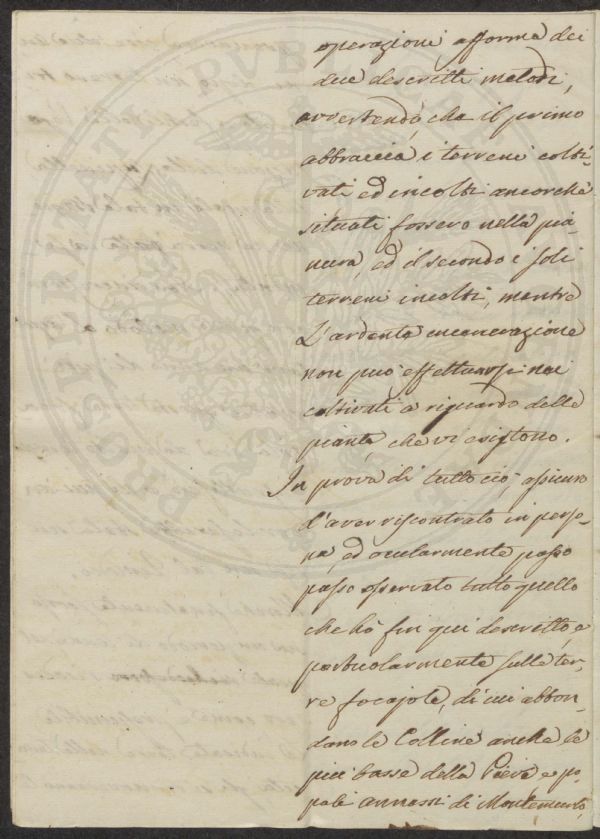 operazioni afforma dei
due descritti metodi,
avvertendo, che il primo
abbraccia i terreni colti-
vati ed incolti ancorche
situati fossero nella pia-
nura, ed il secondo i soli
terreni incolti, mentre
L'ardente incinerazione
non può effettuarsi nei
coltivati a riguardo delle
piante, che vi esistono.
In prova di tutto ciò, assicuro
d'aver riscontrato in perso-
na, ed ocularmente passo
passo osservato tutto quello
che hò fin qui descritto, e
particolarmente sulle ter-
re focajole, di cui abbon-
dano le Colline anche le
più basse della Pieve, e po-
poli annassi di